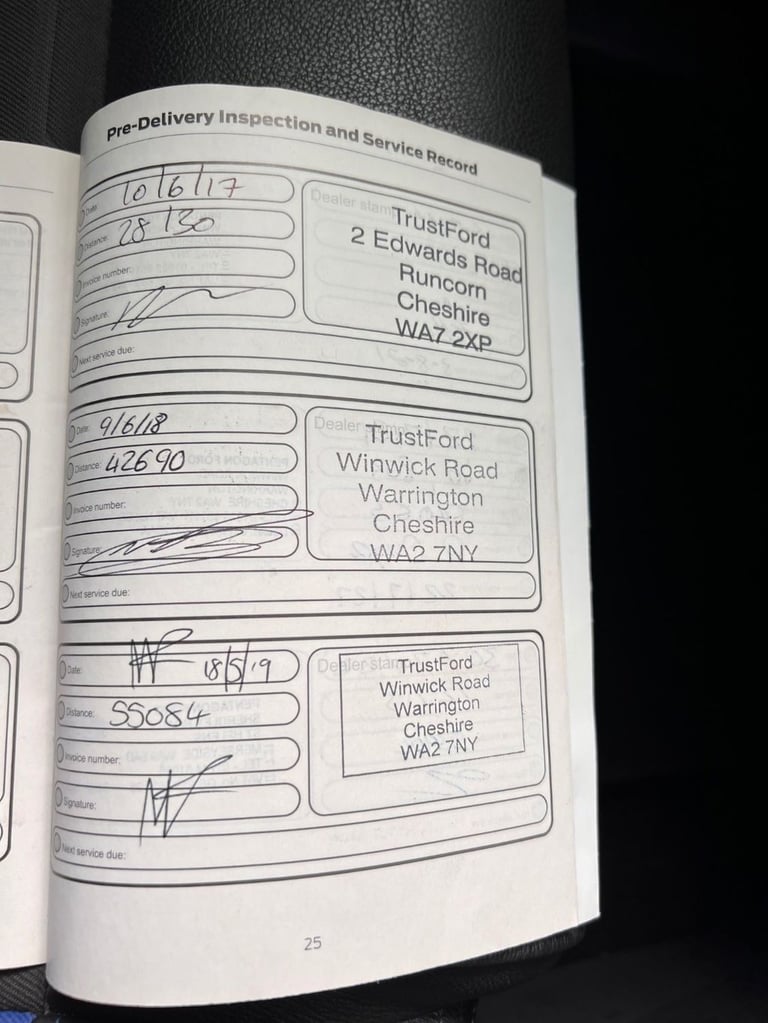 Pre-Delivery Inspection and Service Record
Date: 10/6/17
Distance: 28130
Invoice number:
Signature:
Next service due:
Dealer stamp
TrustFord
2 Edwards Road
Runcorn
Cheshire
WA7 2XP
Date: 9/6/18
Distance: 42690
Invoice number:
Signature:
Next service due:
Dealer stamp
TrustFord
Winwick Road
Warrington
Cheshire
WA2 7NY
Date: 18/5/19
Distance: 55084
Invoice number:
Signature:
Next service due:
Dealer stam
TrustFord
Winwick Road
Warrington
Cheshire
WA2 7NY
25